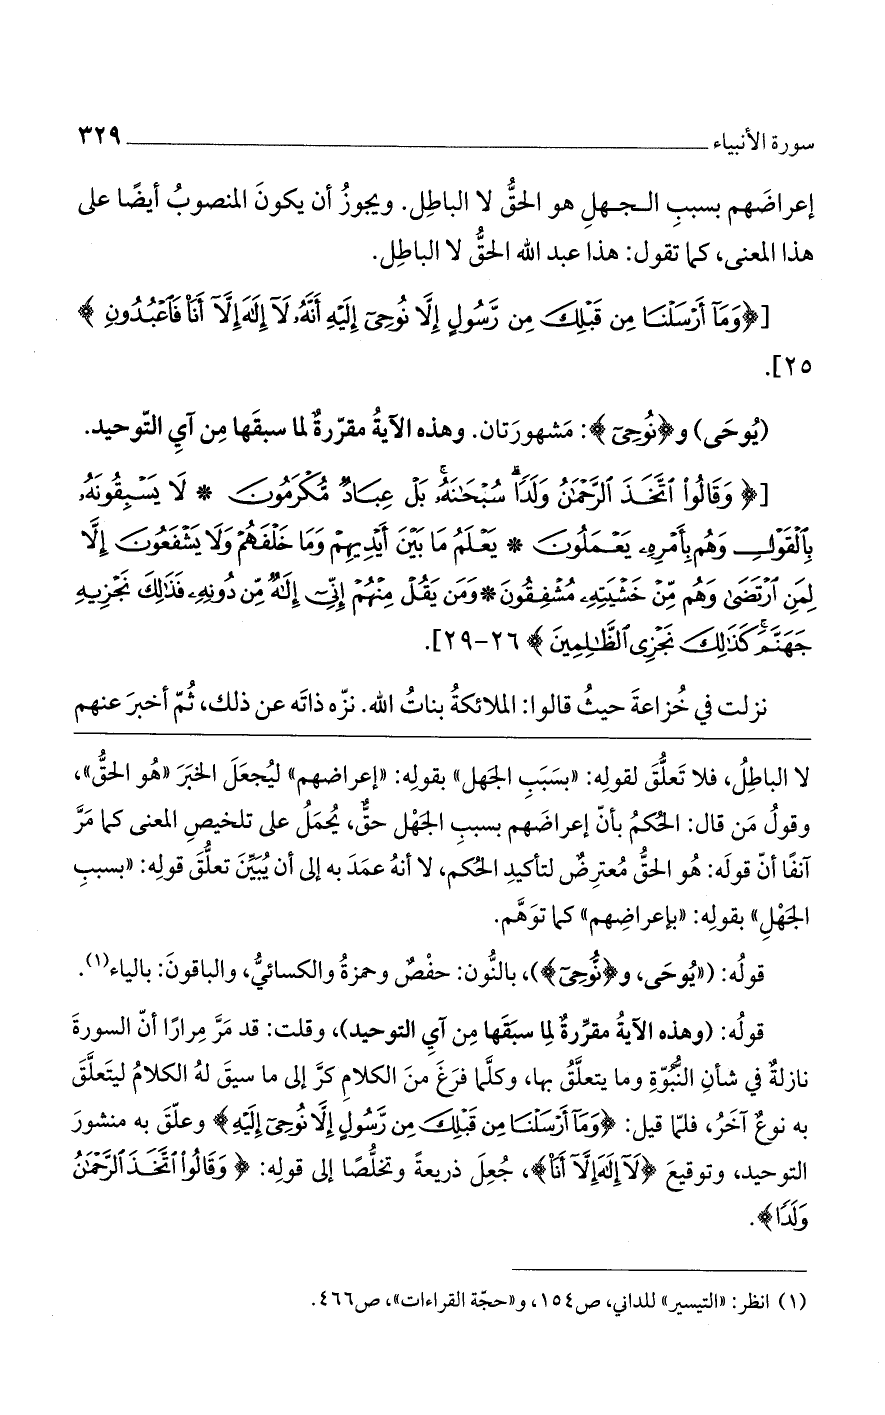 سورة الأنبياء ٣٢٩
إعراضَهم بسببِ الـجـهلِ هو الحقُّ لا الباطِل. ويجوزُ أن يكونَ المنصوبُ أيضًا على
هذا المعنى، كما تقول: هذا عبد الله الحقُّ لا الباطِل.
[﴿وَمَآ أَرْسَلْنَا مِن قَبْلِكَ مِن رَّسُولٍ إِلَّا نُوحِىٓ إِلَيْهِ أَنَّهُۥ لَآ إِلَٰهَ إِلَّآ أَنَا۠ فَٱعْبُدُونِ ﴾
٢٥].
(يُوحَى) و﴿نُوحِىٓ﴾: مَشهورَتان. وهذه الآيةُ مقرّرةٌ لما سبقَها مِن آيِ التّوحيد.
[﴿ وَقَالُوا۟ ٱتَّخَذَ ٱلرَّحْمَٰنُ وَلَدًا ۗ سُبْحَٰنَهُۥ ۚ بَلْ عِبَادٌ مُّكْرَمُونَ * لَا يَسْبِقُونَهُۥ
بِٱلْقَوْلِ وَهُم بِأَمْرِهِۦ يَعْمَلُونَ * يَعْلَمُ مَا بَيْنَ أَيْدِيهِمْ وَمَا خَلْفَهُمْ وَلَا يَشْفَعُونَ إِلَّا
لِمَنِ ٱرْتَضَىٰ وَهُم مِّنْ خَشْيَتِهِۦ مُشْفِقُونَ * وَمَن يَقُلْ مِنْهُمْ إِنِّىٓ إِلَٰهٌ مِّن دُونِهِۦ فَذَٰلِكَ نَجْزِيهِ
جَهَنَّمَ ۚ كَذَٰلِكَ نَجْزِى ٱلظَّٰلِمِينَ ﴾ ٢٦-٢٩].
نزلت في خُزاعةَ حيثُ قالوا: الملائكةُ بناتُ الله. نزّه ذاتَه عن ذلك، ثُمّ أخبرَ عنهم
لا الباطِلُ، فلا تَعلُّقَ لقولِه: «بسَبَبِ الجَهل» بقولِه: «إعراضهم» ليُجعَلَ الخبَرَ «هو الحقُّ»،
وقولُ مَن قال: الحُكمُ بأنّ إعراضَهم بسببِ الجَهْل حقٌّ، يُحمَلُ على تلخيصِ المعنى كما مَرَّ
آنفًا أنّ قولَه: هُو الحقُّ مُعترِضٌ لتأكيدِ الحُكم، لا أنهُ عمَدَ به إلى أن يُبيِّنَ تعلُّقَ قولِه: «بسببِ
الجَهْلِ» بقولِه: «بإعراضِهم» كما توَهَّم.
قولُه: («يُوحَى، و﴿نُّوحِىٓ﴾)، بالنُّون: حفْصٌ وحمزةُ والكسائيُّ، والباقونَ: بالياء(١).
قولُه: (وهذه الآيةُ مقرِّرةٌ لِما سبَقَها مِن آيِ التوحيد)، وقلت: قد مَرَّ مِرارًا أنّ السورةَ
نازلةٌ في شأنِ النُّبوّةِ وما يتعلَّقُ بها، وكلَّما فرَغَ منَ الكلامِ كرَّ إلى ما سيقَ لهُ الكلامُ ليتَعلَّقَ
به نوعٌ آخَرُ، فلمّا قيل: ﴿وَمَآ أَرْسَلْنَا مِن قَبْلِكَ مِن رَّسُولٍ إِلَّا نُوحِىٓ إِلَيْهِ﴾ وعلّقَ به منشورَ
التوحيد، وتوقيعَ ﴿لَآ إِلَٰهَ إِلَّآ أَنَا۠﴾، جُعِلَ ذريعةً وتخلُّصًا إلى قولِه: ﴿ وَقَالُوا۟ ٱتَّخَذَ ٱلرَّحْمَٰنُ
وَلَدًا﴾.
(١) انظر: «التيسير» للداني، ص١٥٤، و«حجّة القراءات»، ص٤٦٦.